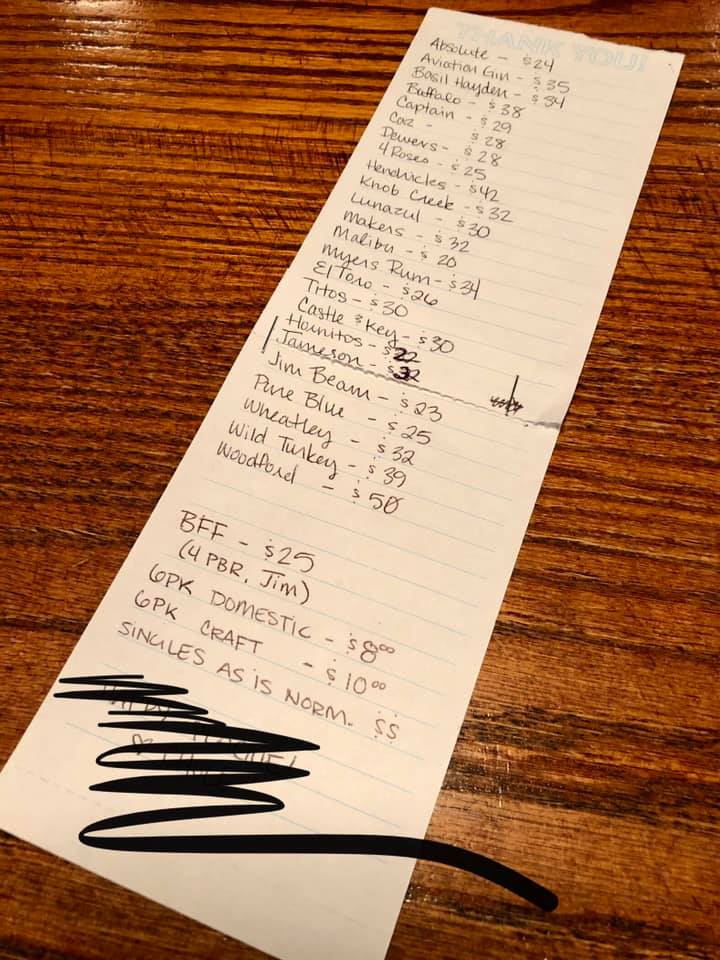 THANK YOU!
Absolute - $24
Aviation Gin - $35
Basil Hayden - $34
Buffalo - $38
Captain - $29
Caz - $28
Dewers - $28
4 Roses - $25
Hendrickes - $42
Knob Creek - $32
Lunazul - $30
Makers - $32
Malibu - $20
Myers Rum - $34
El Toro - $26
Titos - $30
Castle & Key - $30
Hornitos - $22
Jameson - $32
Jim Beam - $23
Pure Blue - $25
Wheatley - $32
Wild Turkey - $39
Woodford - $50
BFF - $25
(4 PBR, Jim)
6PK DOMESTIC - $8.00
6PK CRAFT - $10.00
SINGLES AS IS NORM. $$